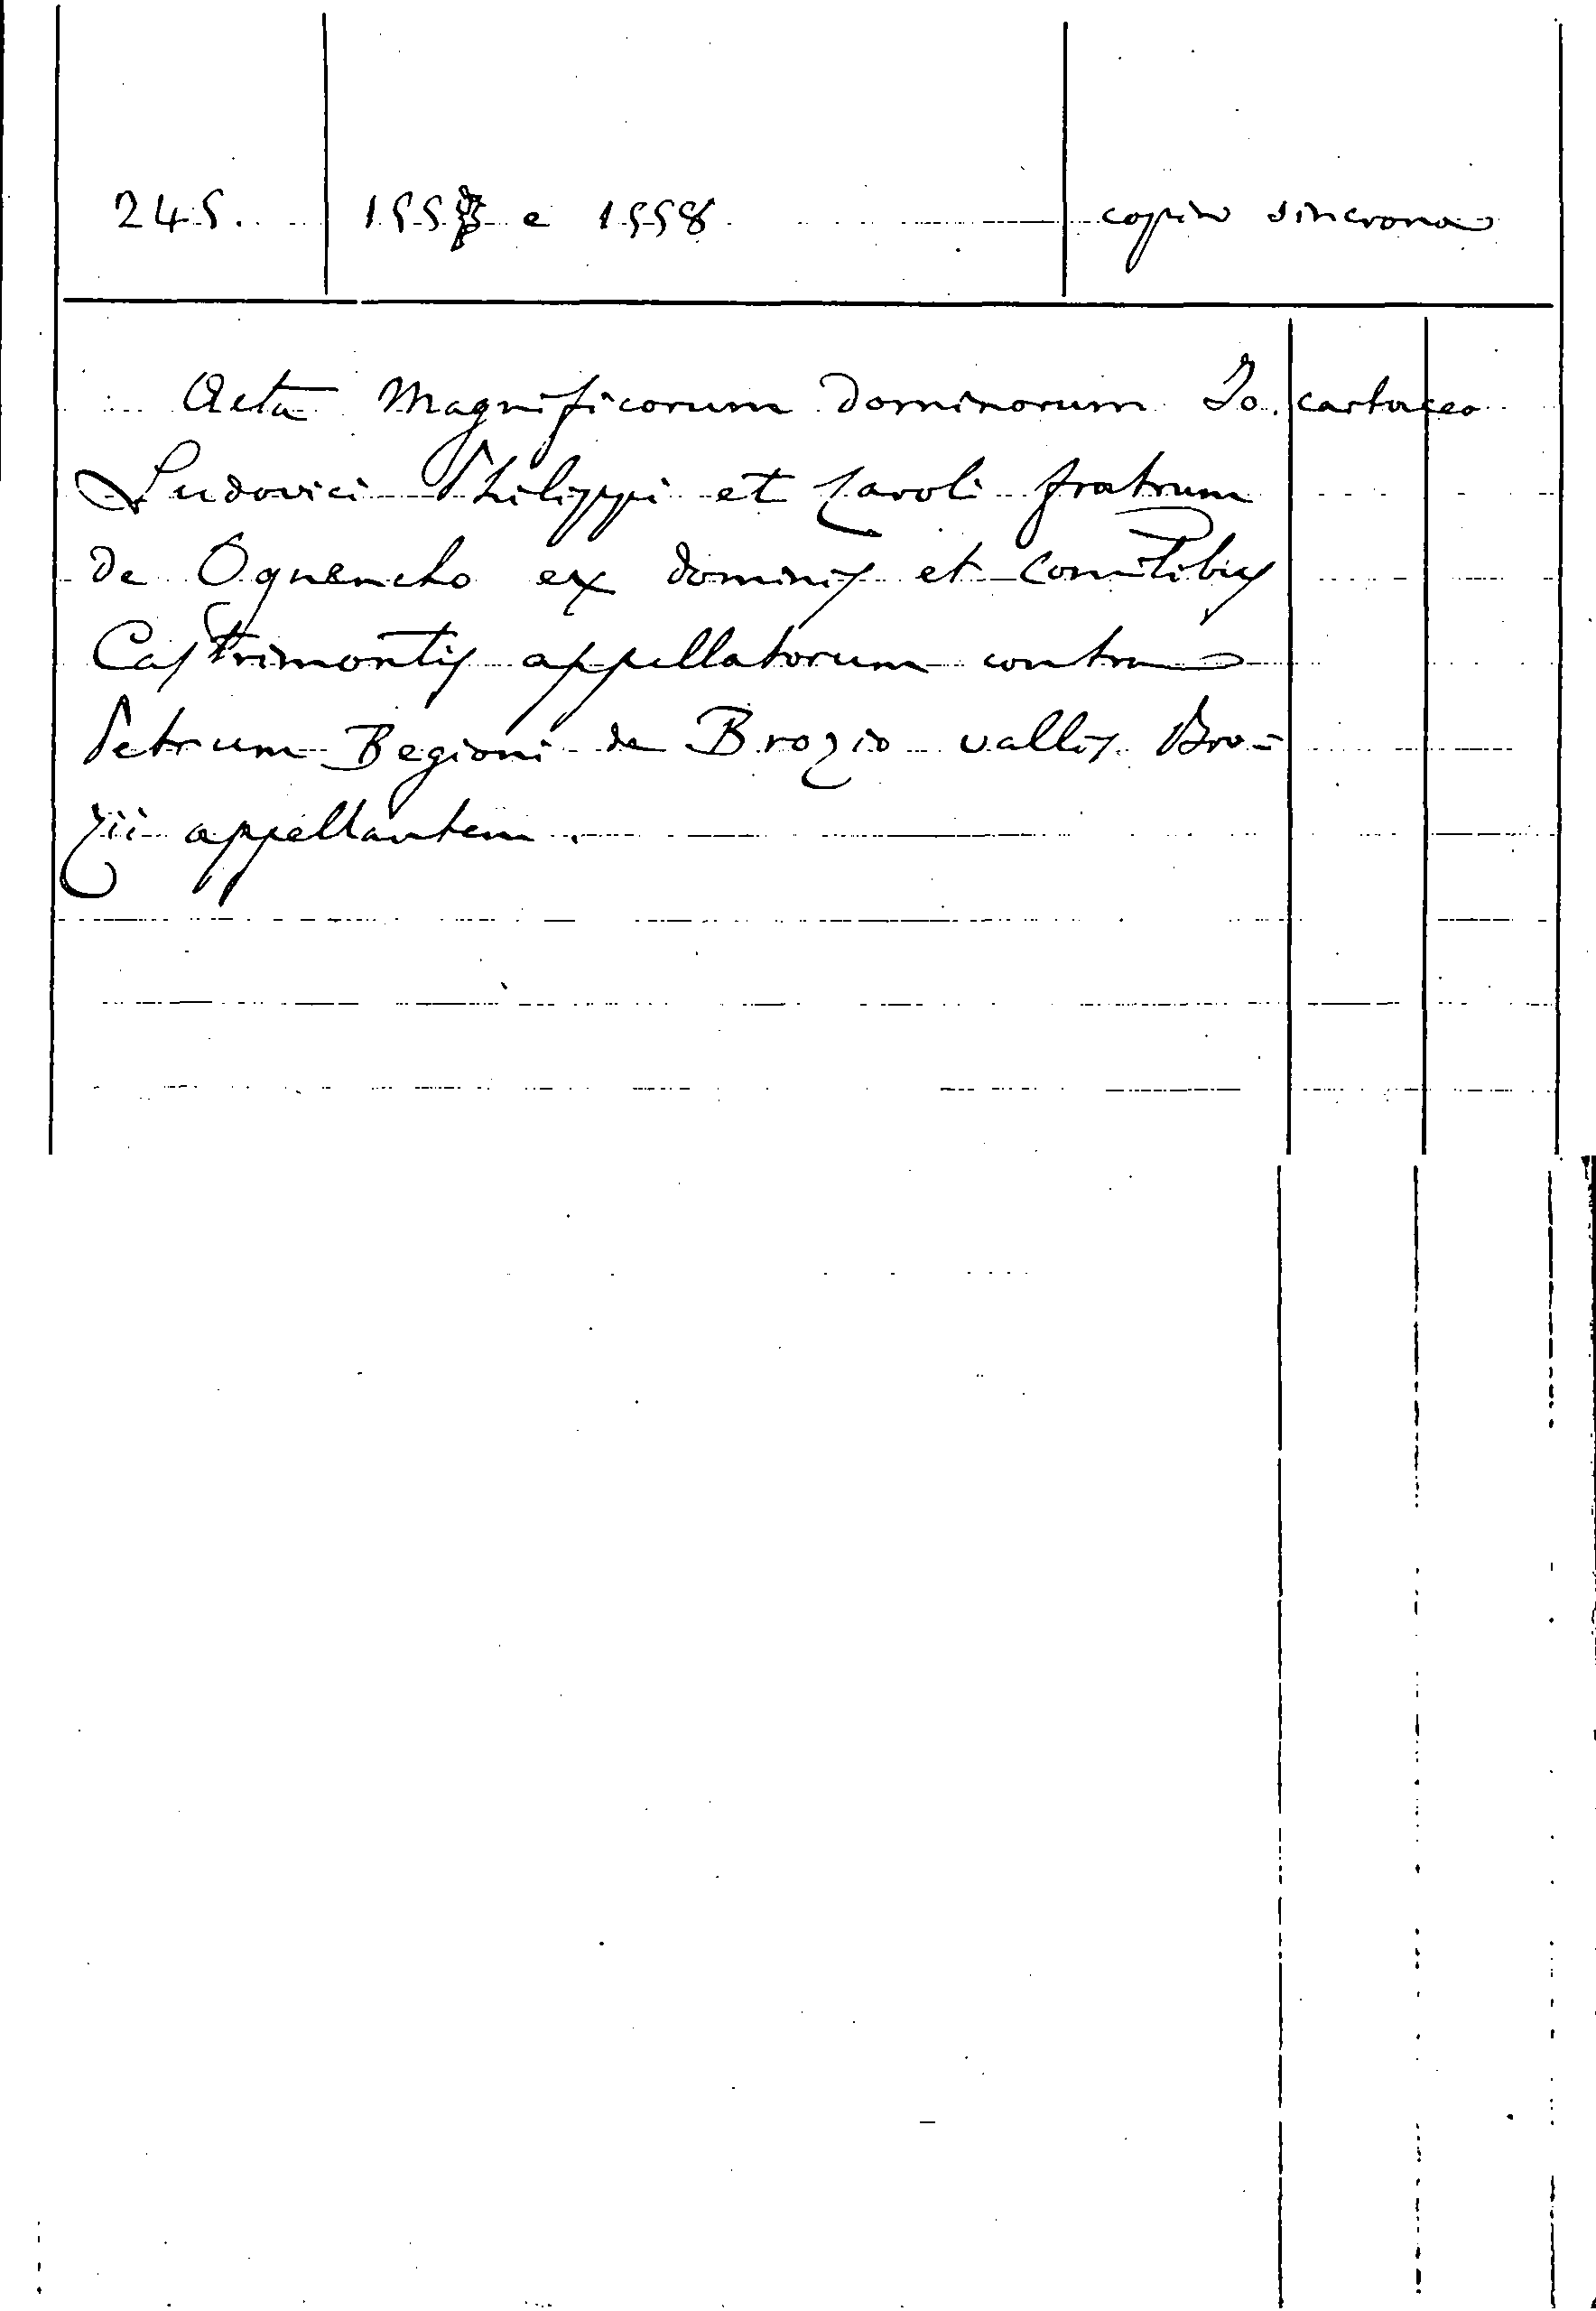 245. 1557 e 1558 copia sincrona
Acta Magnificorum dominorum Jo. cartaceo
Ludovici Philippi et Caroli fratrum
de Ogнencho ex dominis et Comitibus
Castrimontis appellatorum contra
Petrum Begioni de Brozio vallis Bro=
zii appellantem.